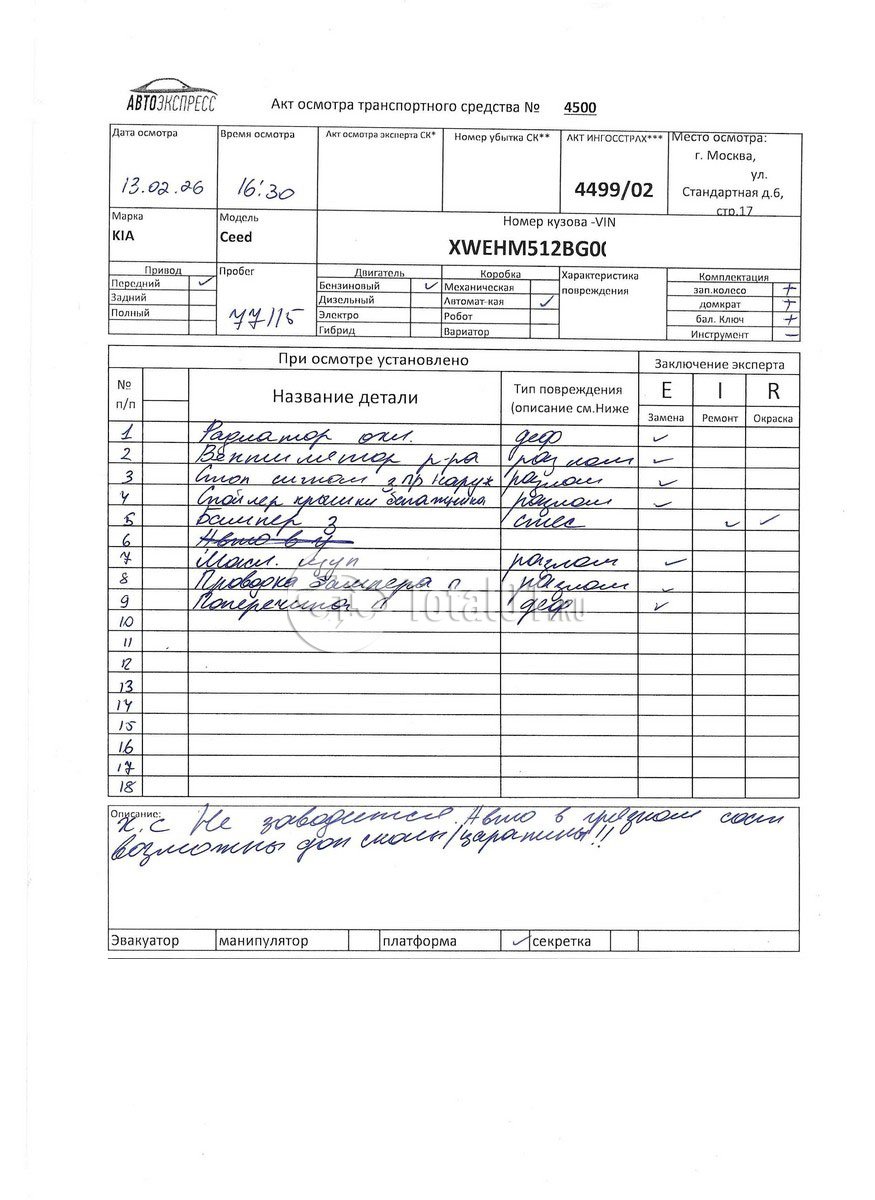 АВТОЭКСПРЕСС
Акт осмотра транспортного средства № 4500
Дата осмотра
Время осмотра
Акт осмотра эксперта СК*
Номер убытка СК**
АКТ ИНГОССТРАХ***
Место осмотра:
г. Москва,
ул.
Стандартная д.6,
стр.17
13.02.26
16:30
4499/02
Марка
Модель
Номер кузова -VIN
KIA
Ceed
XWEHM512BG0
Привод
Пробег
Двигатель
Коробка
Характеристика
повреждения
Комплектация
Передний ✓
Бензиновый ✓
Механическая
зап.колесо +
Задний
Дизельный
Автомат-кая ✓
домкрат +
Полный
77115
Электро
Робот
бал. Ключ +
Гибрид
Вариатор
Инструмент –
При осмотре установлено
Заключение эксперта
№
п/п
Название детали
Тип повреждения
(описание см.Ниже
E I R
Замена Ремонт Окраска
1 Радиатор охл. деф ✓
2 Вентилятор р-ра разлом ✓
3 Стоп сигнал з пр наруж разлом ✓
4 Спойлер крышки багажника разлом ✓
5 Бампер з стес ✓ ✓
6 Авто в у
7 Масл. щуп разлом ✓
8 Проводка бампера п разлом ✓
9 Поперечина п деф ✓
Total01.RU
10
11
12
13
14
15
16
17
18
Описание:
х.с Не заводится. Авто в грязном сост
возможны доп сколы/царапины!!
Эвакуатор манипулятор платформа ✓ секретка